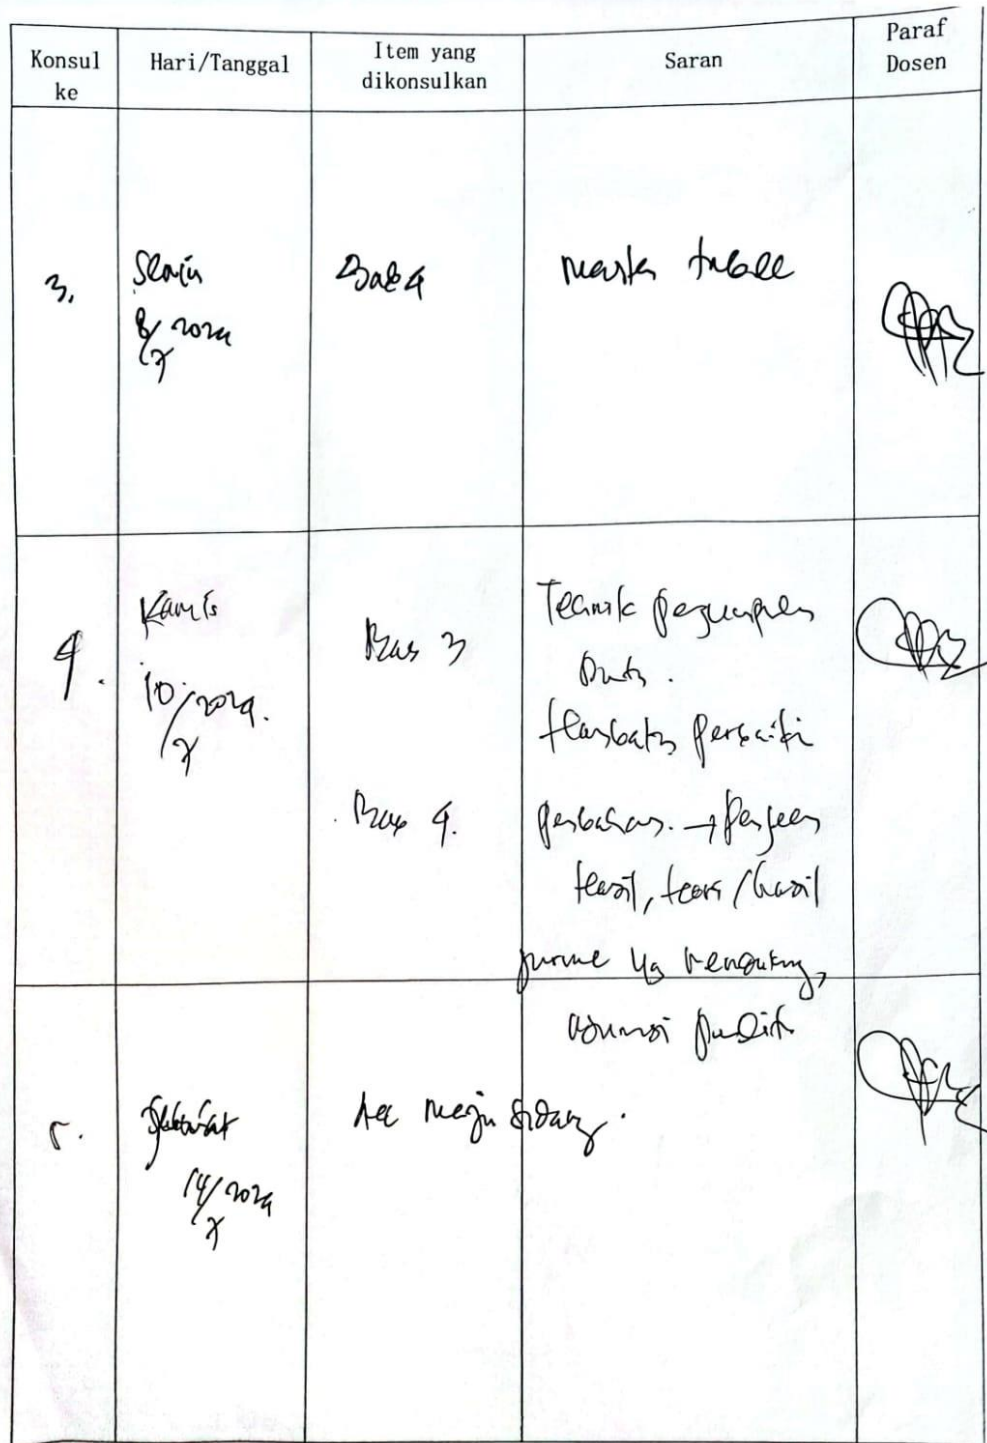 Konsul ke
Hari/Tanggal
Item yang dikonsulkan
Saran
Paraf Dosen
3.
Senin
8/7 2024
Bab 4
master tabel
4.
Kamis
10/7 2024.
Bab 3
Teknik pengumpulan
Data.
perbaiki
Bab 4.
pembahasan. →
hasil, teori/hasil
jurnal yg mendukung,
asumsi peneliti
5.
14/7 2024
Acc maju sidang.